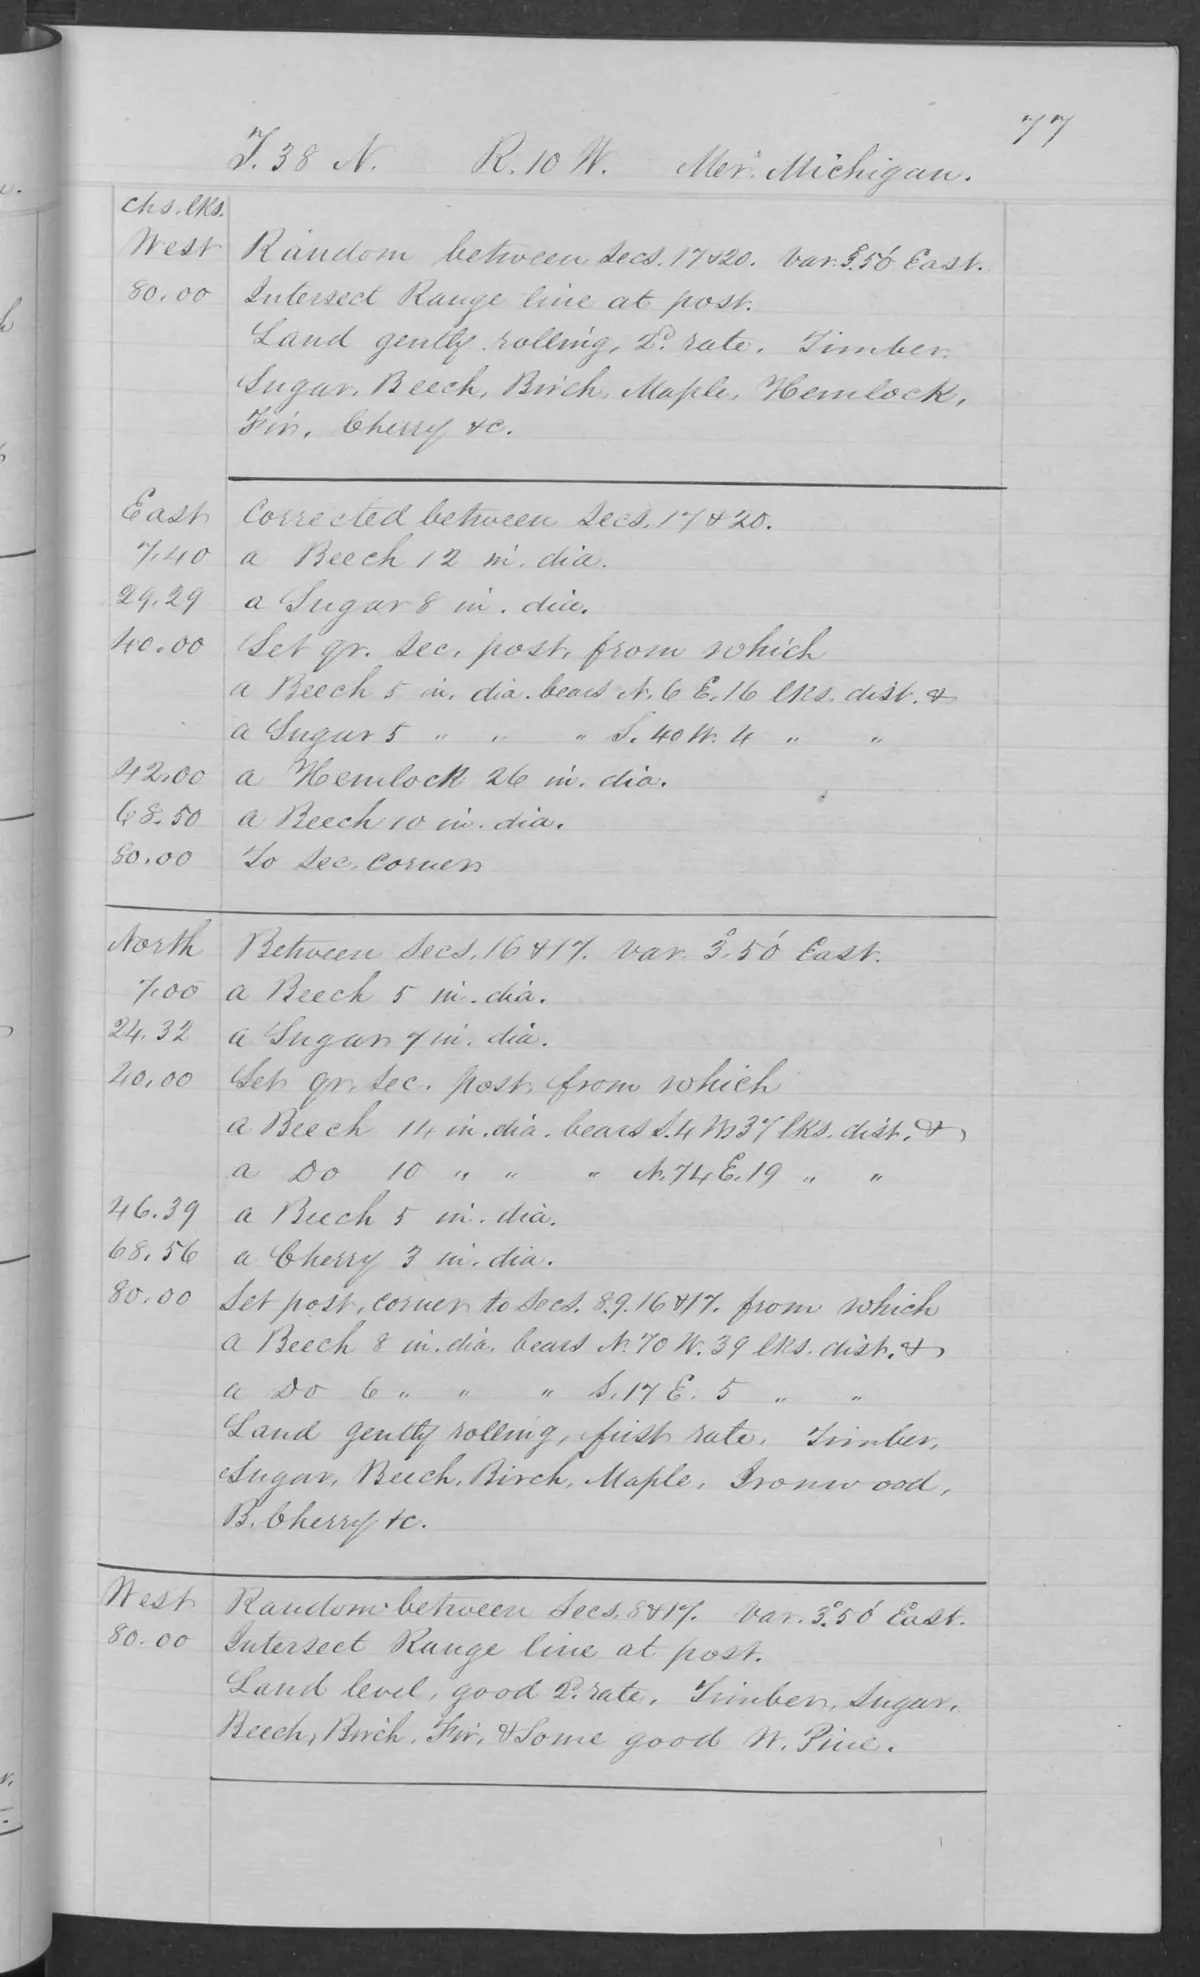 77
T. 38 N. R. 10 W. Mer. Michigan.
chs. lks.
West Random between Secs. 17 & 20. Var. 3.° 50' East.
80.00 Intersect Range line at post.
Land gently rolling, 2d. rate. Timber.
Sugar, Beech, Birch, Maple, Hemlock,
Fir, Cherry &c.
East Corrected between Secs. 17 & 20.
7.40 a Beech 12 in. dia.
29.29 a Sugar 8 in. dia.
40.00 Set qr. Sec. post, from which
a Beech 5 in. dia. bears N. 6 E. 16 lks. dist. &
a Sugar 5 " " " S. 40 W. 4 " "
42.00 a Hemlock 26 in. dia.
68.50 a Beech 10 in. dia.
80.00 To Sec. Corner
North Between Secs. 16 & 17. Var. 3.° 50' East.
7.00 a Beech 5 in. dia.
24.32 a Sugar 7 in. dia.
40.00 Set qr. Sec. post, from which
a Beech 14 in. dia. bears S. 4 W 37 lks. dist. &
a Do 10 " " " N. 74 E. 19 " "
46.39 a Beech 5 in. dia.
68.56 a Cherry 3 in. dia.
80.00 Set post, corner to Secs. 8.9.16 & 17. from which
a Beech 8 in. dia. bears N. 70 W. 39 lks. dist. &
a Do 6 " " " S. 17 E. 5 " "
Land gently rolling, first rate. Timber,
Sugar, Beech, Birch, Maple, Ironwood,
B. Cherry &c.
West Random between Secs. 8 & 17. Var. 3.° 50' East.
80.00 Intersect Range line at post.
Land level, good 2d. rate. Timber, Sugar,
Beech, Birch, Fir, & Some good W. Pine.